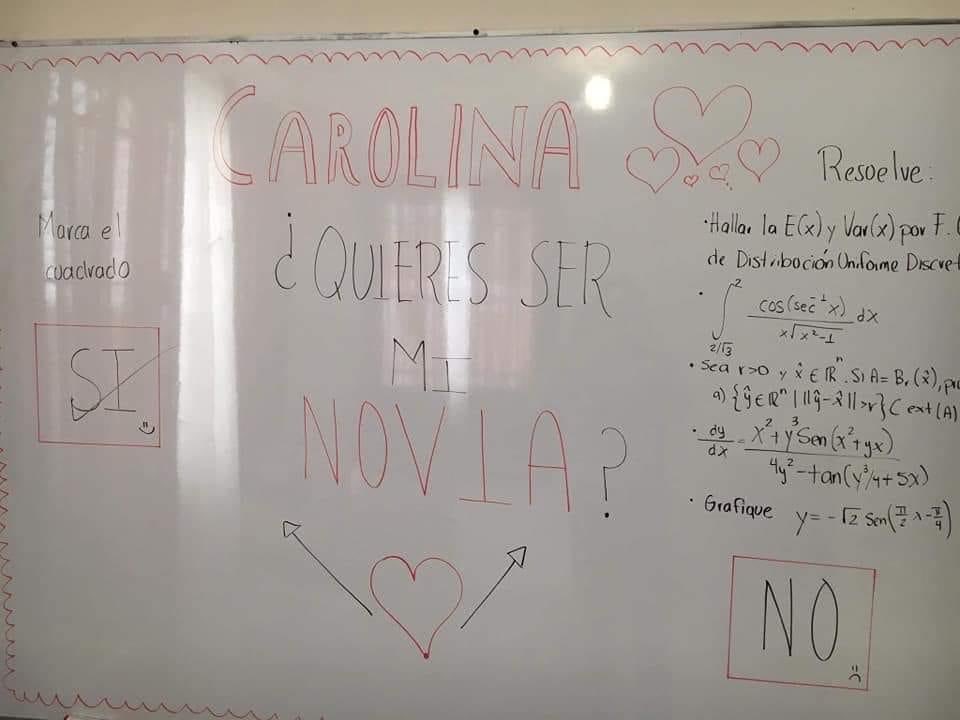 CAROLINA
¿QUIERES SER
MI
NOVIA?
Marca el
cuadrado
SI
Resuelve:
· Hallar la E(x) y Var(x) por F.
de Distribución Uniforme Discret
· ∫_{2/√3}^{2} cos(sec⁻¹x) / x√x²-1 dx
· Sea r>0 y x̂ ∈ ℝⁿ. Si A = Bᵣ(x̂), pr
a) {ŷ ∈ ℝⁿ | ||ŷ-x̂|| >r} ⊂ ext(A)
· dy/dx = x²+y³Sen(x²+yx) / 4y²-tan(y³/4+5x)
· Grafique y = -√2 Sen(π/2 x - π/4)
NO